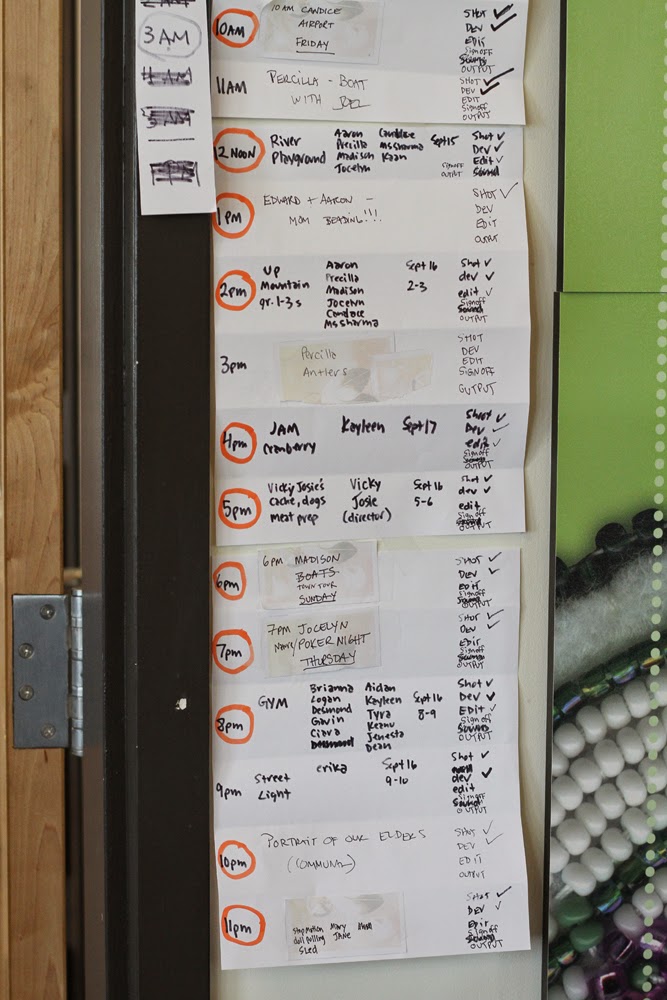 3AM
10AM
10AM CANDICE
AIRPORT
FRIDAY
SHOT ✓
DEV ✓
EDIT
SIGNOFF
OUTPUT
11AM
PERCILLA - BOAT
WITH
SHOT ✓
DEV ✓
EDIT
SIGNOFF
OUTPUT
12 NOON
River
Playground
Aaron
Precilla
Madison
Jocelyn
Canddace
Ms Sharma
Kaan
Sept 15
SIGNOFF
OUTPUT
Shot ✓
Dev ✓
Edit ✓
Sound
1PM
EDWARD + AARON -
MOM BEADING!!!
SHOT ✓
DEV
EDIT
OUTPUT
2pm
UP
Mountain
gr. 1-3s
Aaron
Precilla
Madison
Jocelyn
Candace
Ms Sharma
Sept 16
2-3
Shot ✓
dev ✓
edit ✓
Signoff
Sound
OUTPUT
3pm
Percilla
Antlers
SHOT
DEV
EDIT
SIGNOFF
OUTPUT
4pm
JAM
Cranberry
Kayleen
Sept 17
Shoot ✓
Dev ✓
edit ✓
Signoff
OUTPUT
5pm
Vicky Josie's
cache, dogs
meat prep
Vicky
Josie
(director)
Sept 16
5-6
Shot ✓
dev ✓
edit
Sign off
OUTPUT
6pm
6PM MADISON
BOATS
TOWN TOUR
SUNDAY
SHOT ✓
DEV ✓
EDIT
SIGNOFF
OUTPUT
7pm
7PM JOCELYN
/POKER NIGHT
THURSDAY
SHOT ✓
DEV ✓
EDIT
SIGNOFF
OUTPUT
8pm
GYM
Brianna
Logan
Desmond
Gavin
Ciara
Desmond
Aidan
Kayleen
Tyra
Keanu
Jenesta
Dean
Sept 16
8-9
Shot ✓
Dev ✓
Edit ✓
Signoff
SOUND
OUTPUT
9pm
Street
Light
erika
Sept 16
9-10
Shot ✓
dev ✓
edit
Signoff
Sound
OUTPUT
10pm
PORTRAIT OF OUR ELDERS
(COMMUNAL)
SHOT ✓
DEV ✓
EDIT
OUTPUT
11pm
Stop Motion
doll pulling
Sled
Mary
JANE
SHOT ✓
DEV ✓
Edit
Signoff
OUTPUT